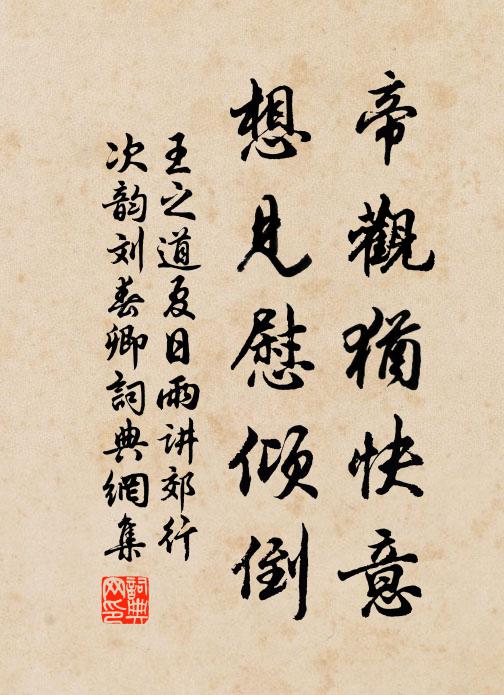 帝觀猶快意
想見慰傾倒
王之道夏日雨讲郊行
次韵刘春卿詞典網集
詞典網印